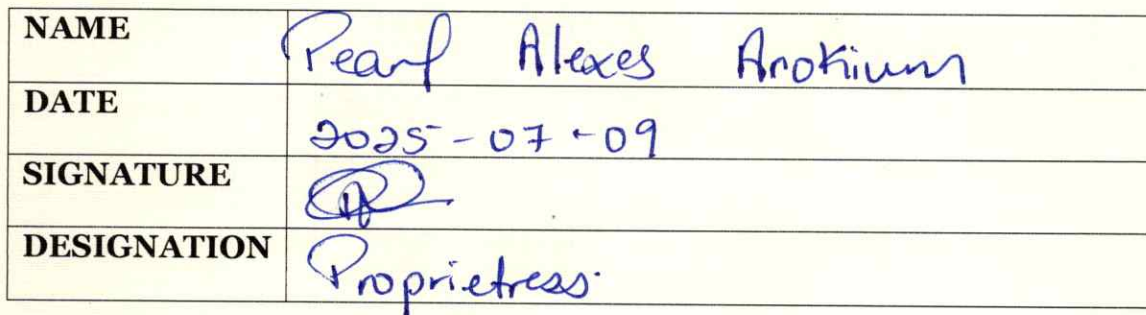 NAME Pearl Alexes Arokium
DATE 2025-07-09
SIGNATURE
DESIGNATION Proprietress.